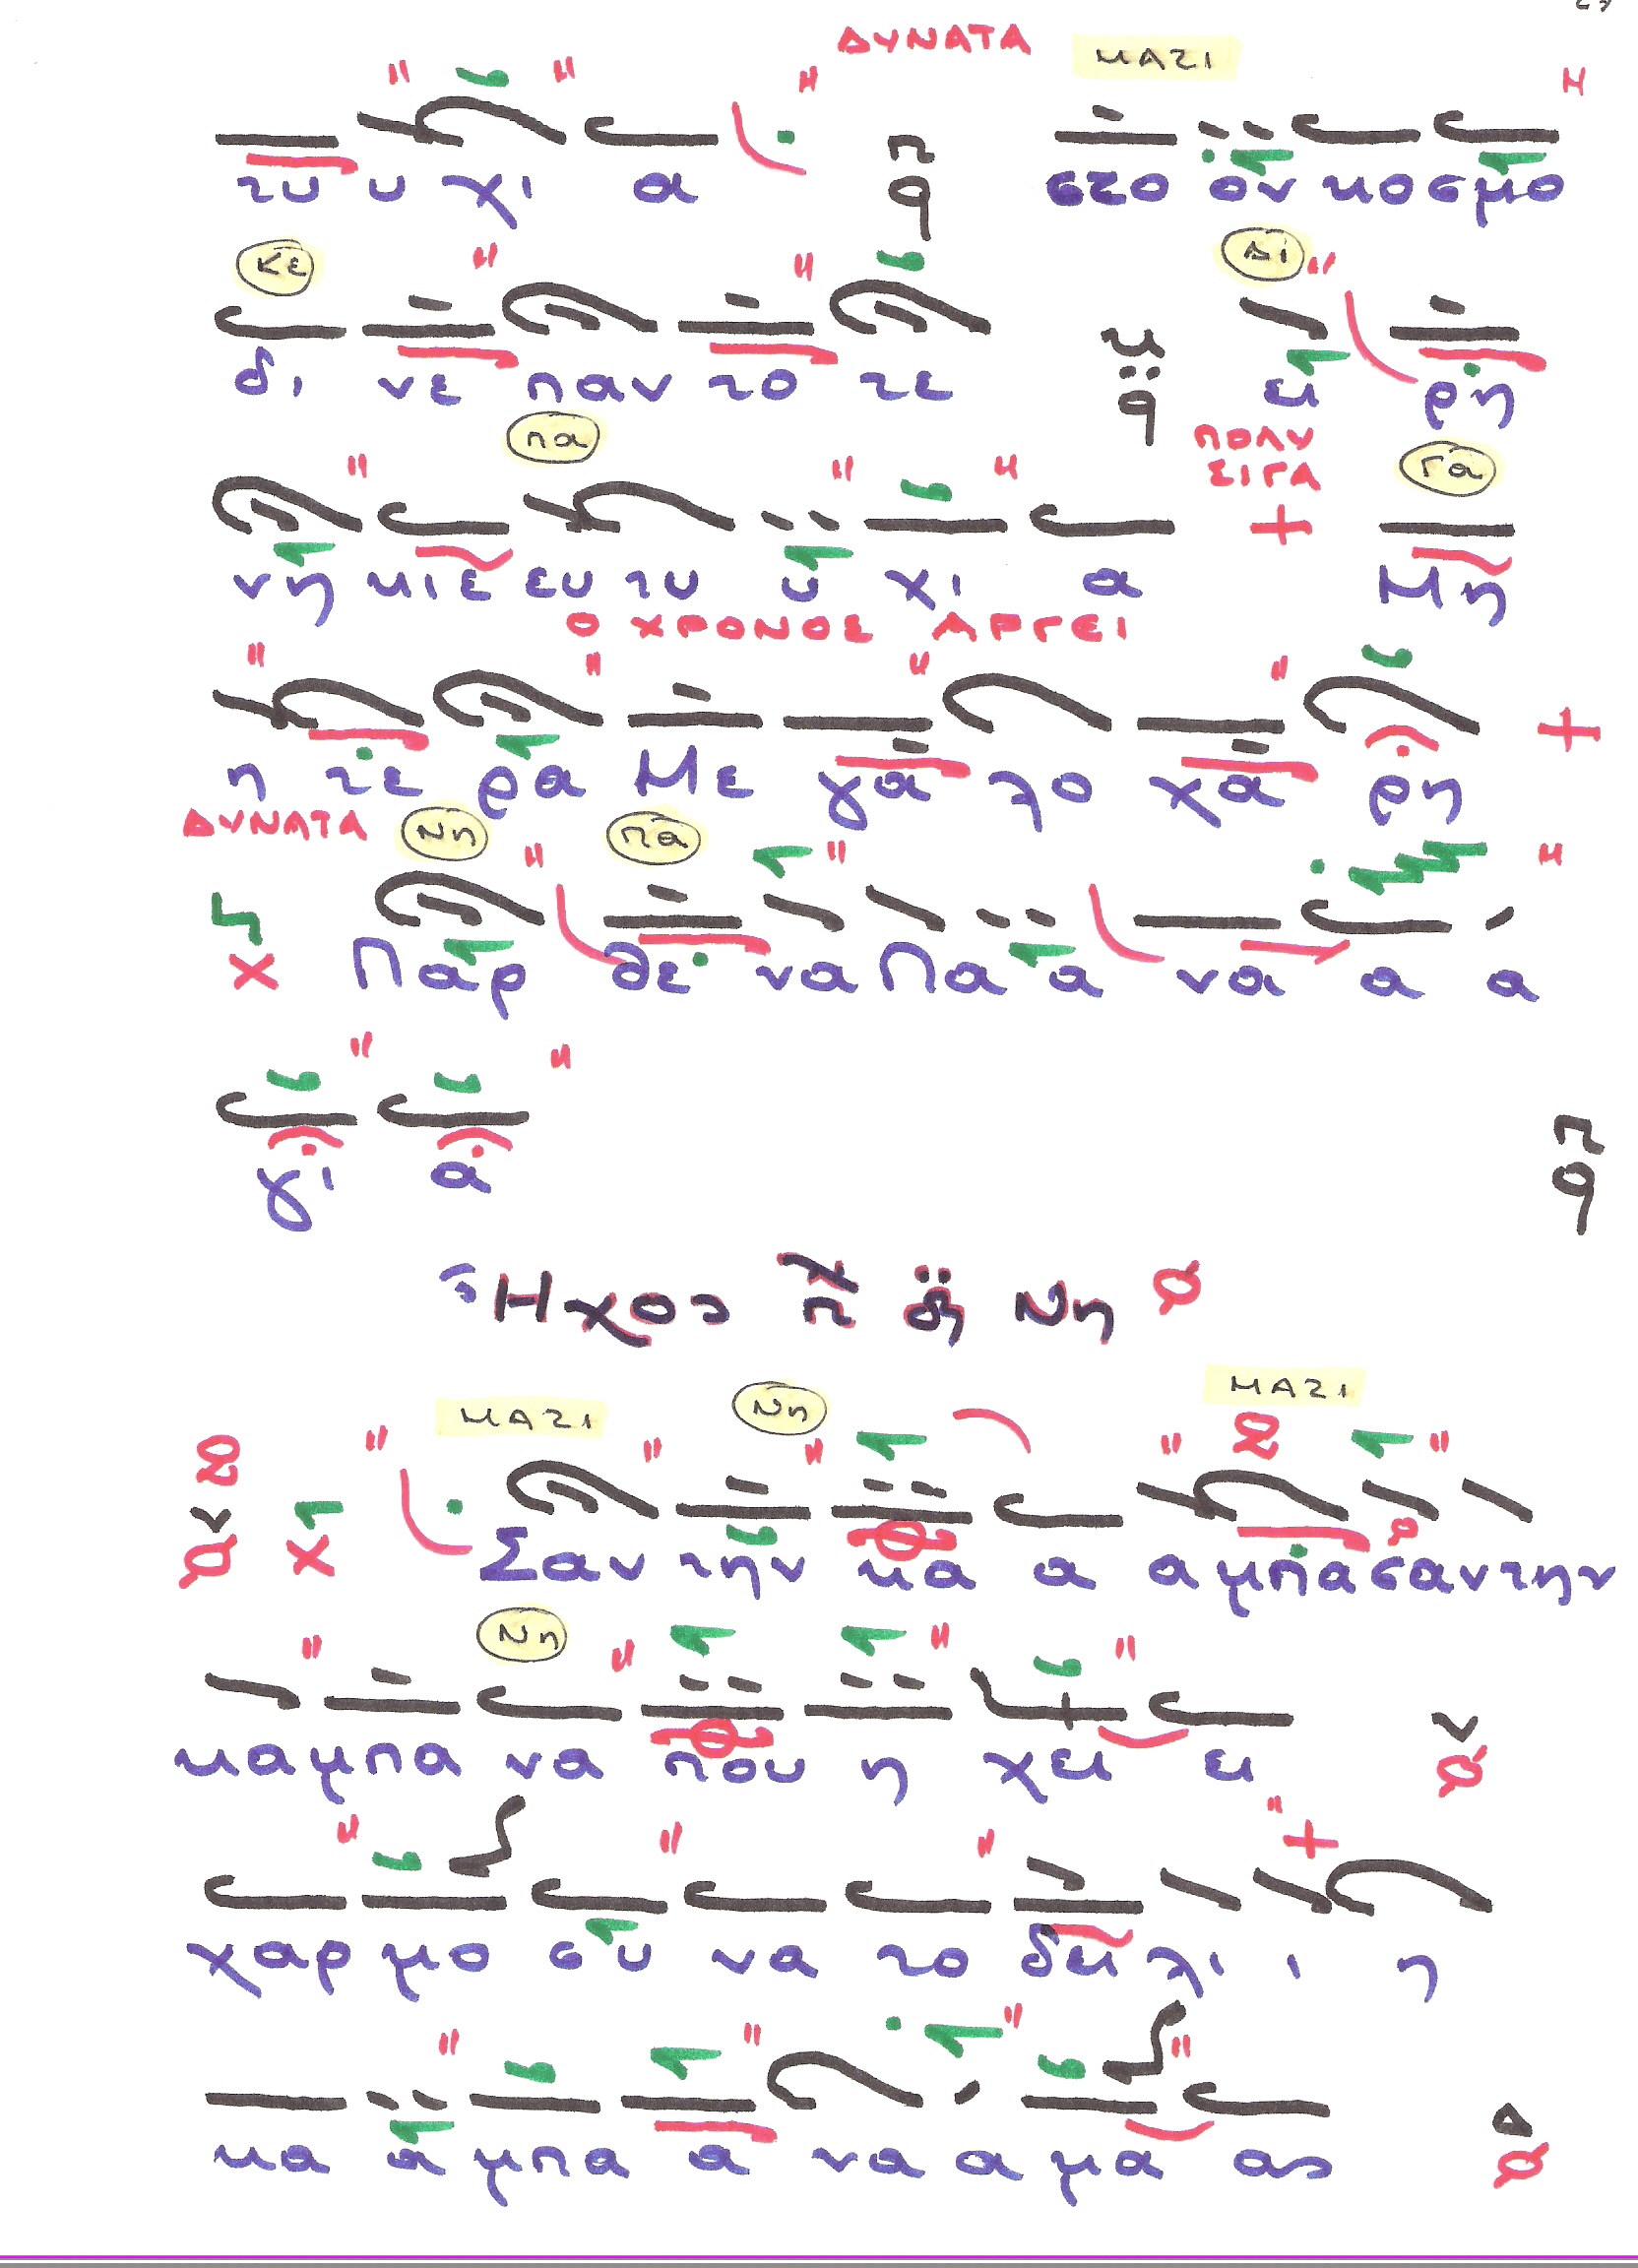 ΔΥΝΑΤΑ ΜΑΖΙ
τυ υ χι α στο ον κοσμο
Κε Δι
δι νε παν το τε ει ρη
Πα ΠΟΛΥ ΣΙΓΑ Γα
νη κιε ευ τυ υ χι α Μη
Ο ΧΡΟΝΟΣ ΑΡΓΕΙ
η τε ρα Με γα λο χα ρη
ΔΥΝΑΤΑ Νη Πα
Παρ θε να Πα α να α α
γι α
Ηχος Νη
ΜΑΖΙ Νη ΜΑΖΙ
Σαν την κα α αμπα σαν την
Νη
καμπα να που η χει ει
χαρ μο συ να το δει λι ι η
κα α μπα α να α μα ας